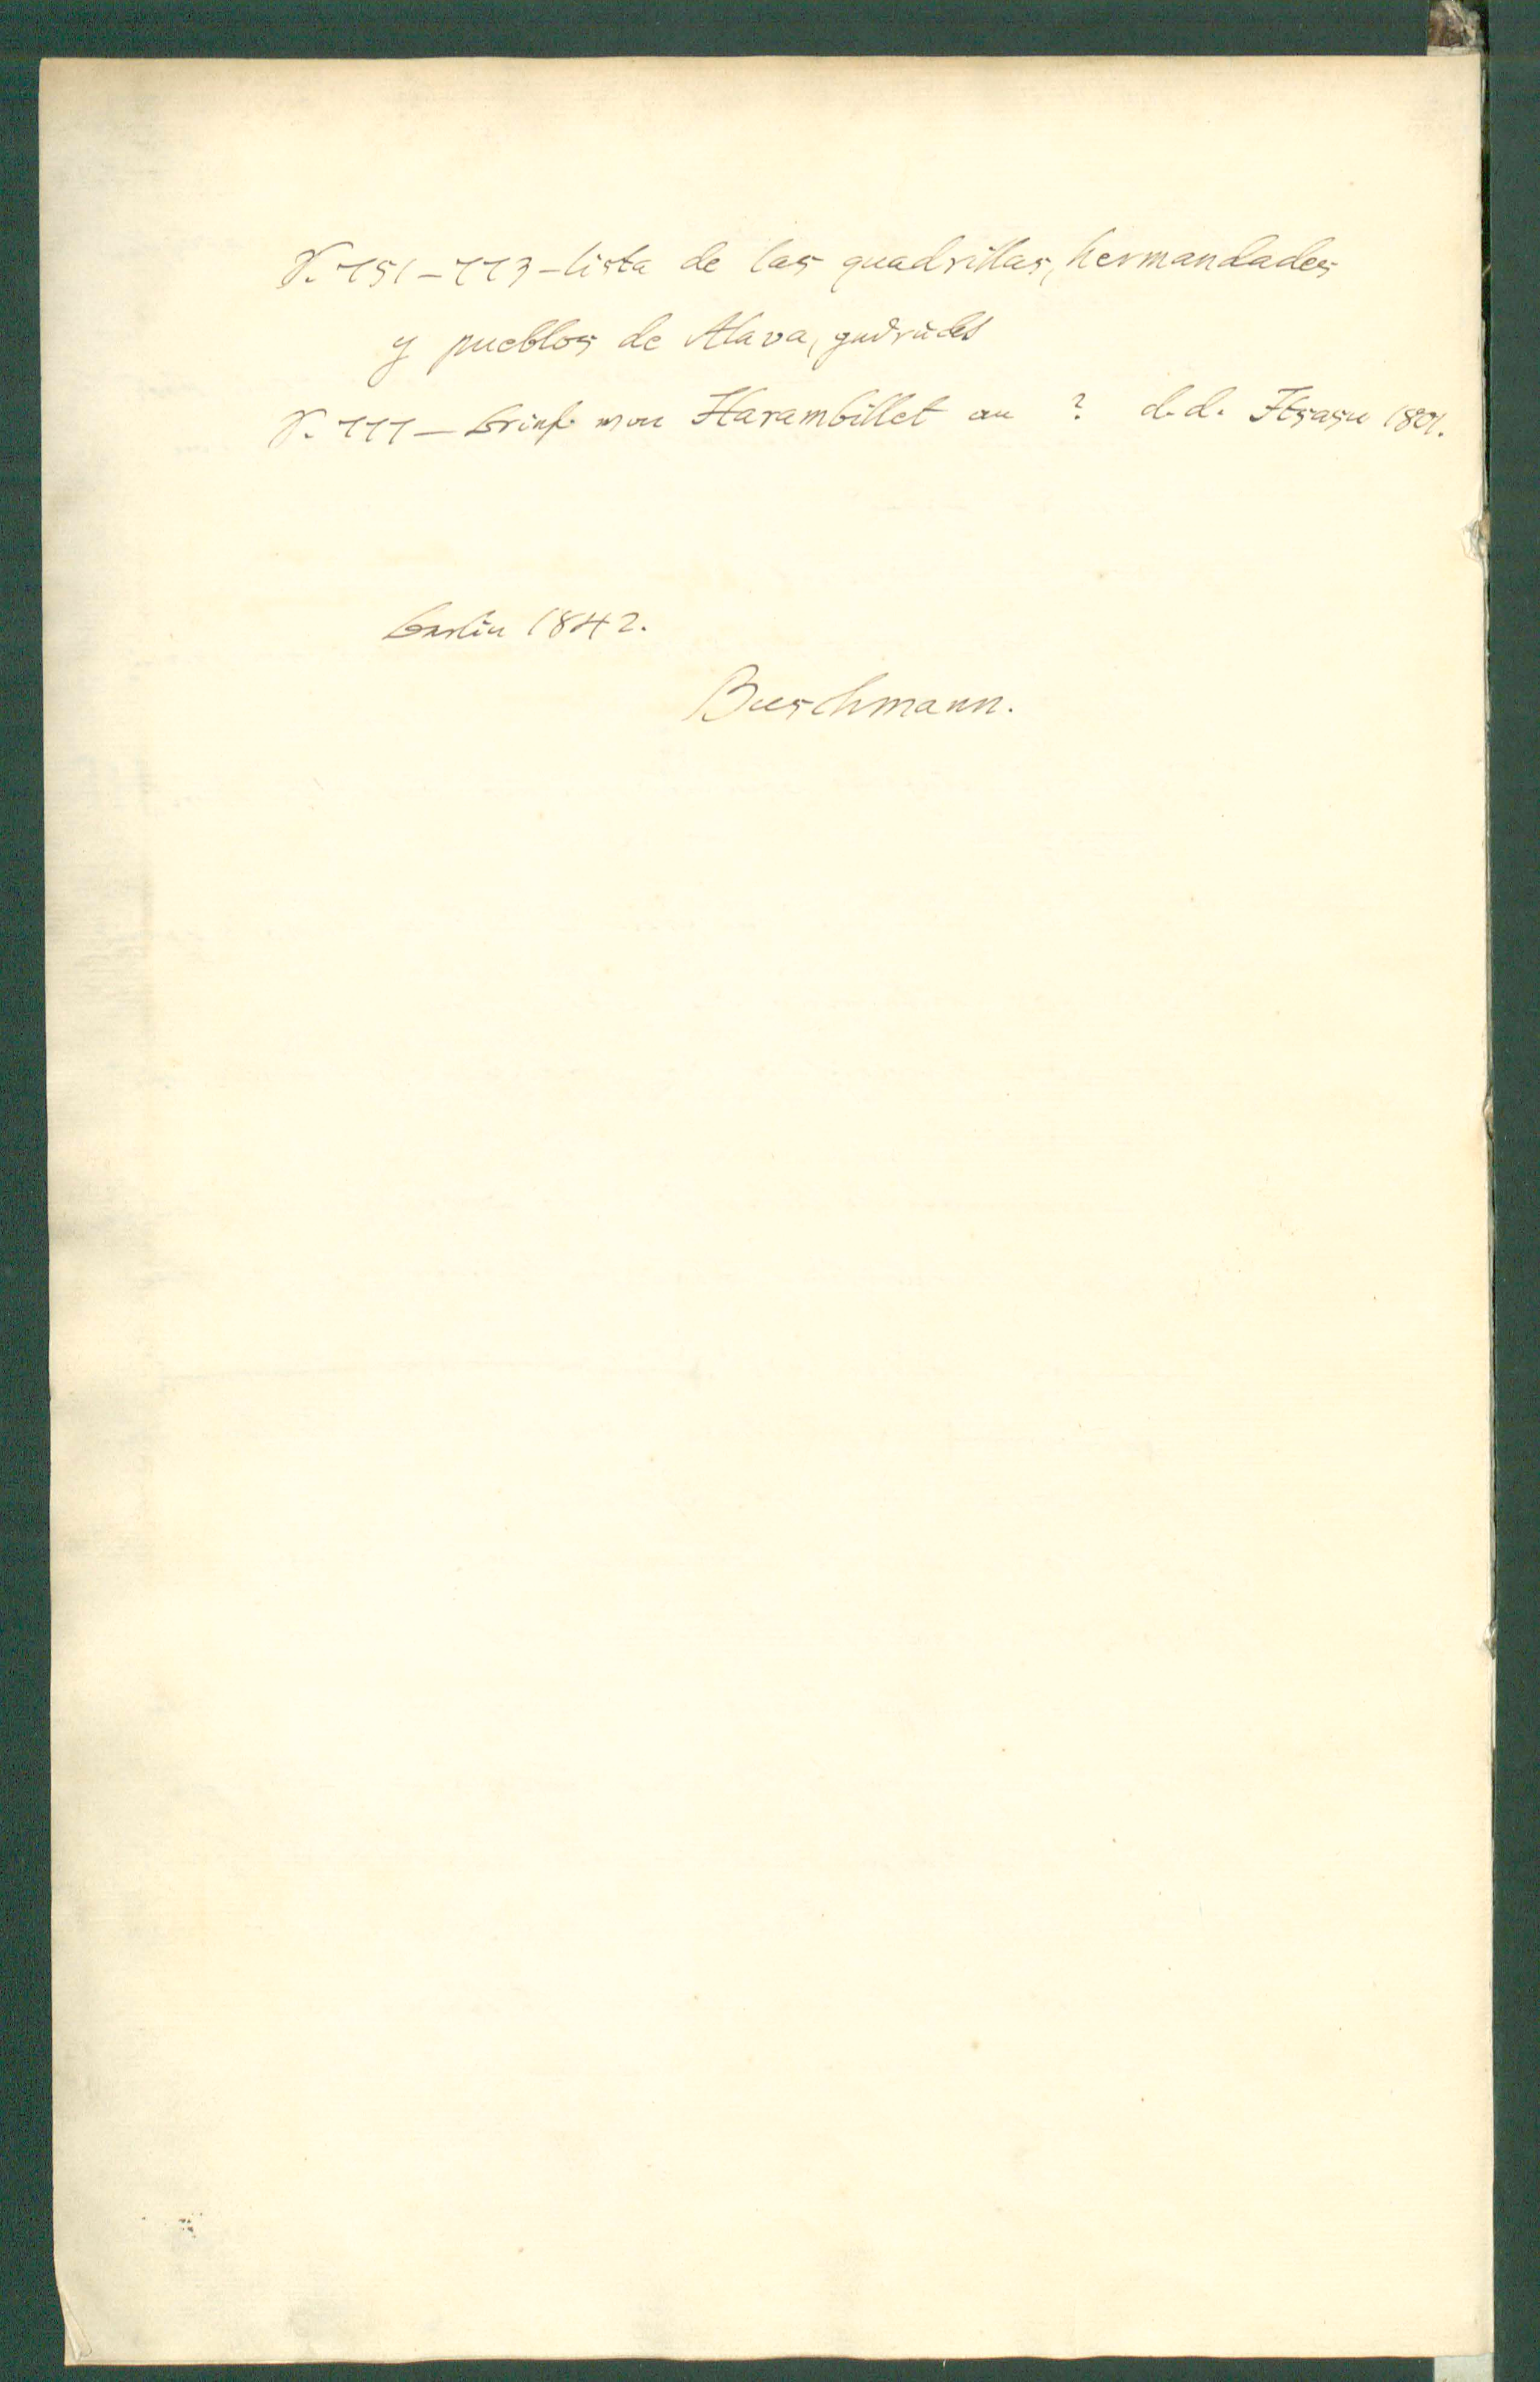 S. 751–773–lista de las quadrillas, hermandades
y pueblos de Alava, gedruckt
S. 777–Brief von Harambillet an ? d.d. Itsasu 1801.
Berlin 1842.
Buschmann.